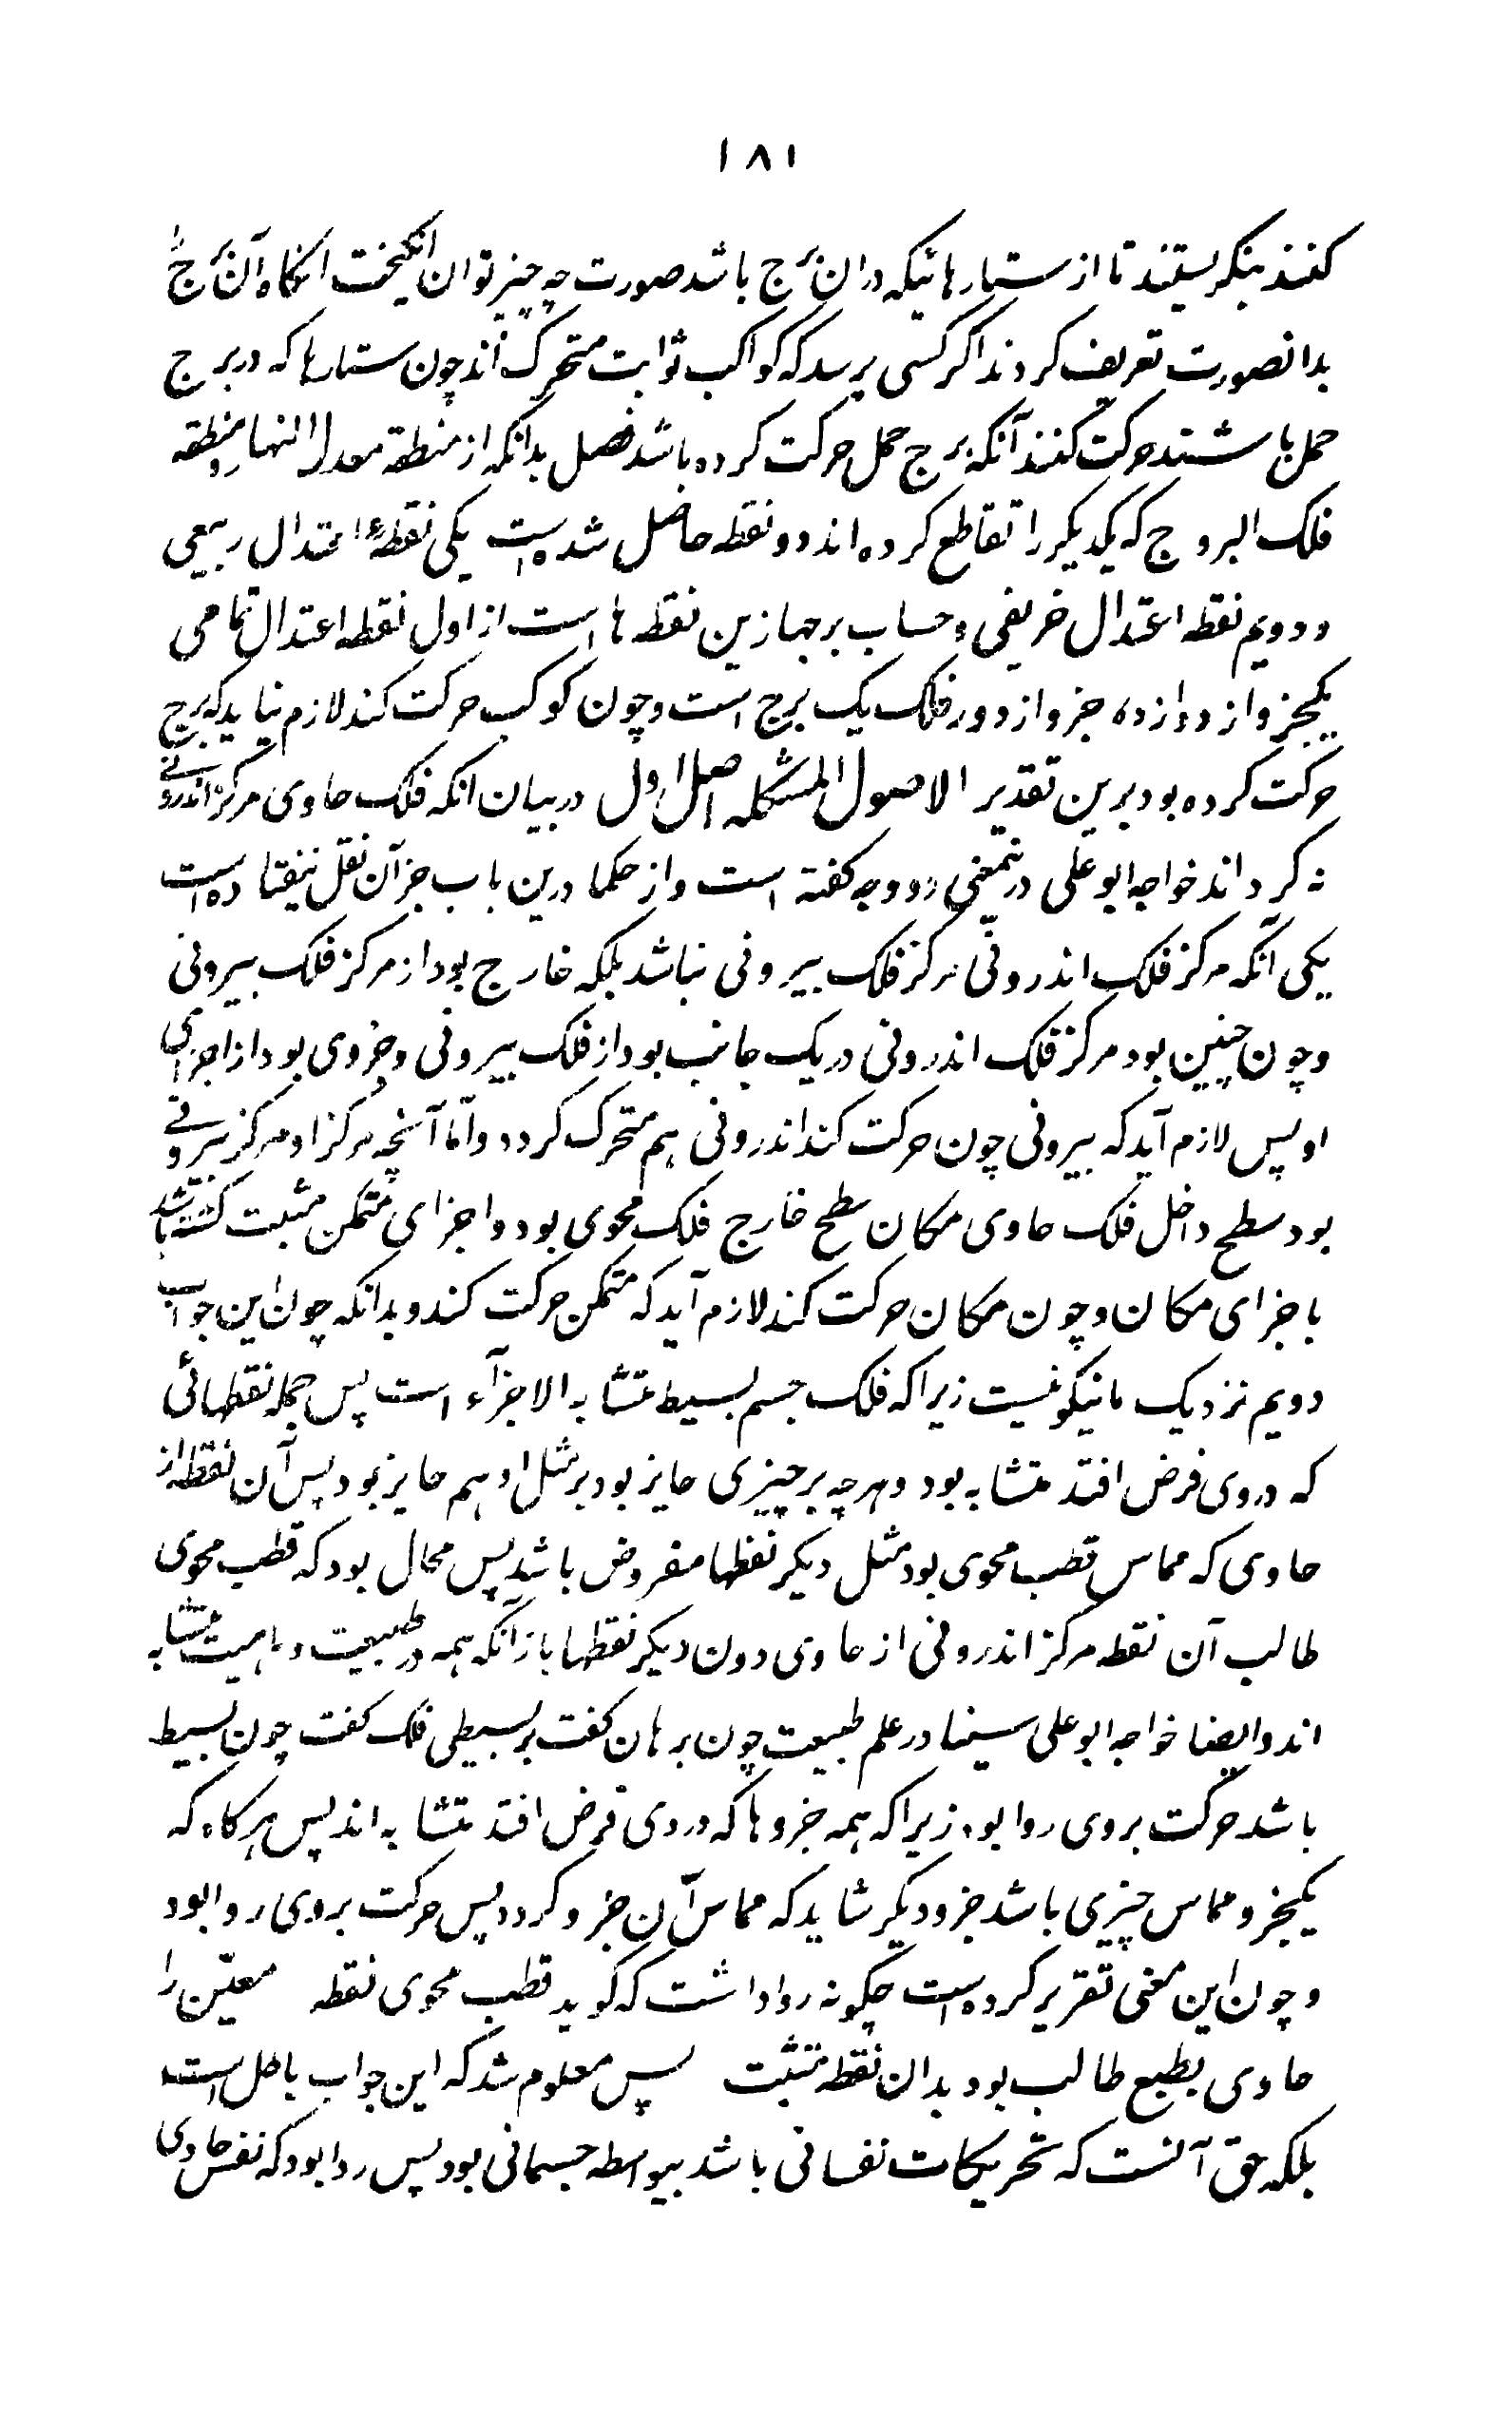 ۱۸۱
کنند بنکریستند تا از ستارهائیکه دران برج باشد صورت چه چیز توان انکیخت انکاه آن برج را
بدانصورت تعریف کردند اکر کسی پرسد که کواکب ثوابت متحرک اند چون ستارها که در برج
حمل باشند حرکت کنند آنکه برج حمل حرکت کرده باشد فصل بدانکه از منطقه معدل النهار و منطقه
فلک البروج که یکدیکر را تقاطع کرده اند دو نقطه حاصل شده است یکی نقطهٔ اعتدال ربیعی
و دویم نقطه اعتدال خریفی و حساب برجها ازین نقطه ها است از اول نقطه اعتدال تمامی
یکجزو از دوازده جزو از دور فلک یک برج است و چون کوکب حرکت کند لازم نیاید که برج
حرکت کرده بود برین تقدیر الاصول المشکله اصل اول در بیان انکه فلک حاوی مرکز اندرونی
نه کرداند خواجه ابوعلی درینمعنی دو وجه کفته است و از حکما درین باب جز آن نقل نیفتاده است
یکی آنکه مرکز فلک اندرونی مرکز فلک بیرونی نباشد بلکه خارج بود از مرکز فلک بیرونی
و چون چنین بود مرکز فلک اندرونی در یک جانب بود از فلک بیرونی و جزوی بود از اجزای
او پس لازم آید که بیرونی چون حرکت کند اندرونی هم متحرک کردد و امّا آنچه مرکز او مرکز بیرونی
بود سطح داخل فلک حاوی مکان سطح خارج فلک محوی بود و اجزای متمکن مثبت کشته باشد
باجزای مکان و چون مکان حرکت کند لازم آید که متمکن حرکت کند و بدانکه چون این جواب
دویم نزدیک ما نیکو نیست زیرا که فلک جسم بسیط متشابه الاجزآء است پس جمله نقطهائی
که در وی فرض افتد متشابه بود و هر چه بر چیزی جایز بود بر مثل او هم جایز بود پس آن نقطه از
حاوی که مماس قطب محوی بود مثل دیکر نقطها مفروض باشد پس محال بود که قطب محوی
طالب آن نقطه مرکز اندرونی از حاوی دون دیکر نقطها باز آنکه همه در طبیعت و ماهیت متشابه
اند و ایضا خواجه ابوعلی سینا در علم طبیعت چون برهان کفت بر بسیطی فلک کفت چون بسیط
باشد حرکت بر وی روا بود زیرا که همه جزوها که در وی فرض افتد متشابه اند پس هر کاه که
یکجزو مماس چیزی باشد جزو دیکر شاید که مماس آن جزو کردد پس حرکت بر وی روا بود
و چون این معنی تقریر کرده است چکونه روا داشت که کوید قطب محوی نقطه معیّن را
حاوی بطبع طالب بود بدان نقطه متثبت پس معلوم شد که این جواب باطل است
بلکه حق آنست که تحریکات نفسانی باشد بیواسطه جسمانی بود پس روا بود که نفس حاوی